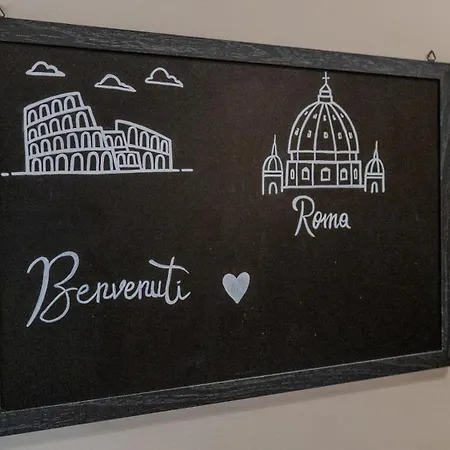 Roma
Benvenuti